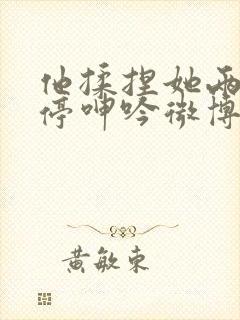 他揉捏她两
停呻吟微博
黄敏东